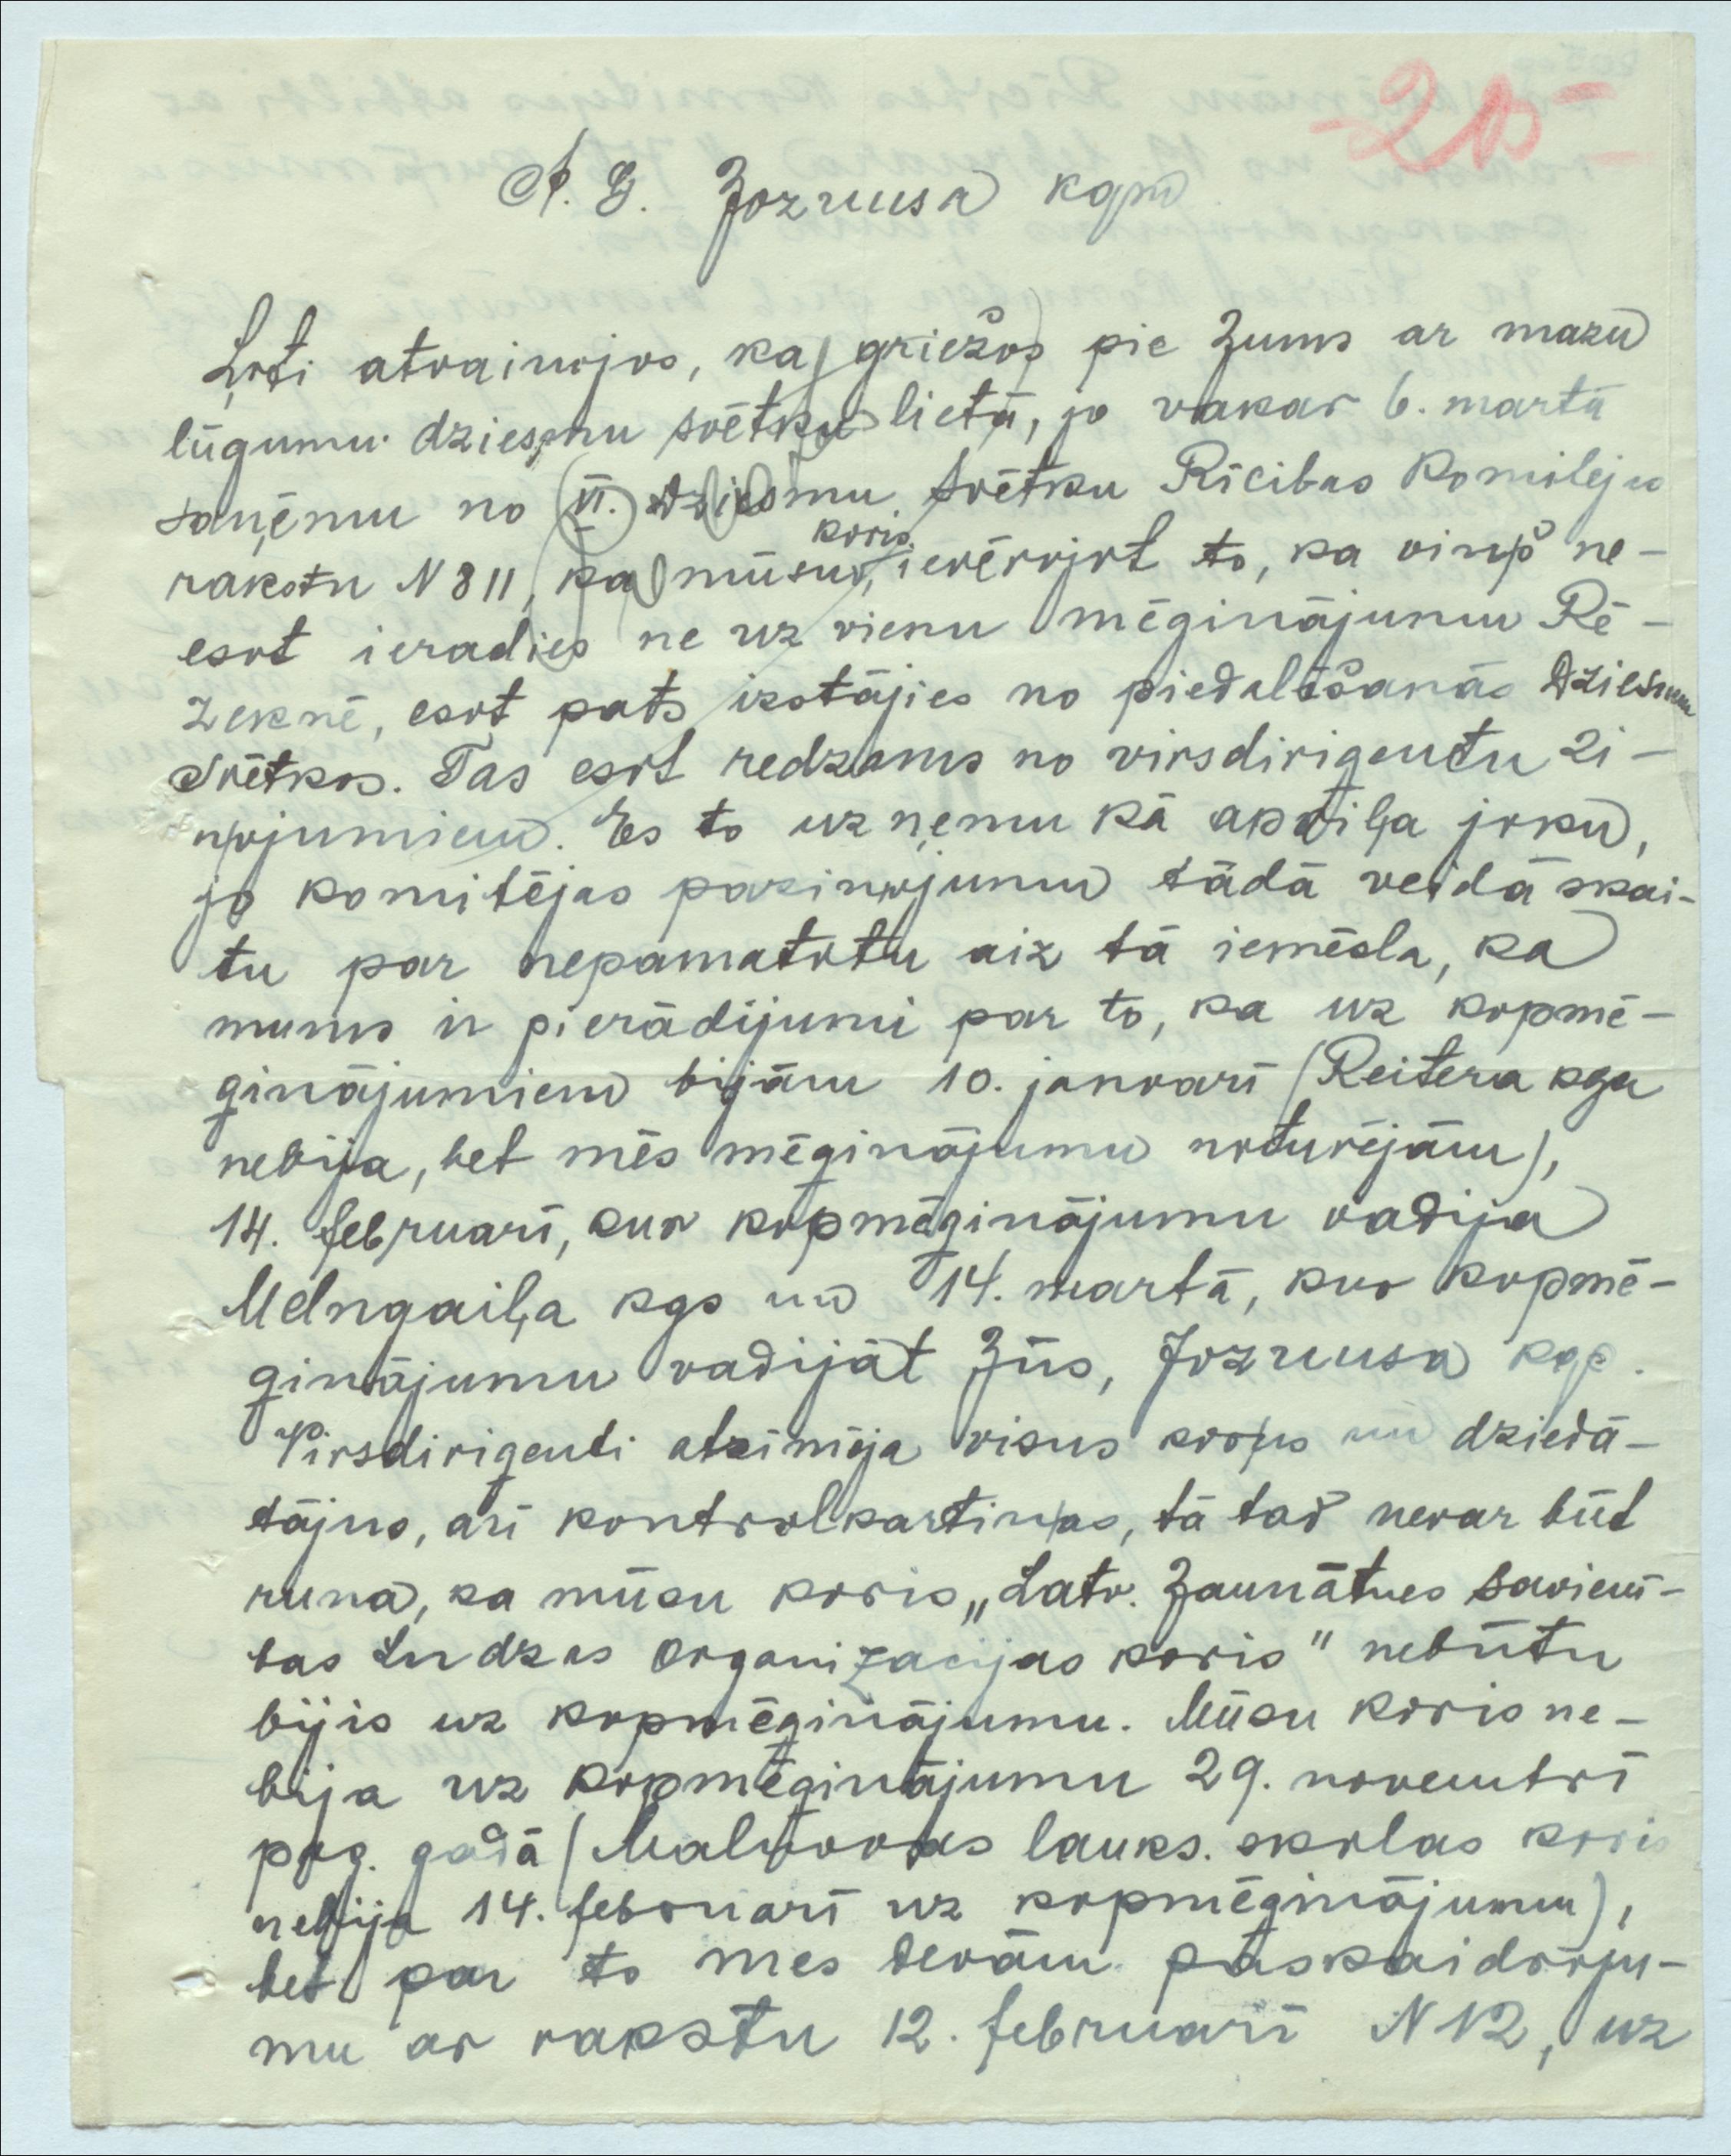 -20-
A. G. Jozuusa kgm
Ļoti atvainojos, ka griežos pie Jums ar mazu
lūgumu dziesmu svētku lietā, jo vakar 6. martā
saņēmu no VI. Dziesmu svētku Rīcibas Komitejas
koris
rakstu N 811, ka mūsu, ievērojot to, ka viņš ne-
esot ieradies ne uz vienu mēginājumu Rē-
zeknē, esot pats izstājies no piedalīšanās Dziesmu
Svētkos. Tas esot redzams no virsdirigentu zi-
ņojumiem. Es to uzņemu kā apriļa joku,
jo komitējas paziņojumu tādā veidā skai-
tu par nepamatotu aiz tā iemēsla, ka
mums ir pierādijumi par to, ka uz kopmē-
ginājumiem bijām 10. janvarī (Reitera kga
nebija, bet mēs mēginājumu noturējām),
14. februarī, kur kopmēginājumu vadija
Melngaiļa kgs un 14. martā, kur kopmē-
ginājumu vadijāt Jūs, Jozuusa kgs.
Virsdirigenti atzimēja visus koŗus un dziedā-
tājus, arī kontrolkartiņas, tā tad nevar būt
runa, ka mūsu koris „Latv. Jaunātnes Savienī-
bas Ludzas Organizacijas koris" nebūtu
bijis uz kopmēginājumu. Mūsu koris ne-
bija uz kopmēginājumu 29. novembrī
pag. gadā (Malnavas lauks. skolas koris
nebija 14. februarī uz kopmēginājumu),
bet par to mes devām paskaidroju-
mu ar rakstu 12. februarī N 12, uz